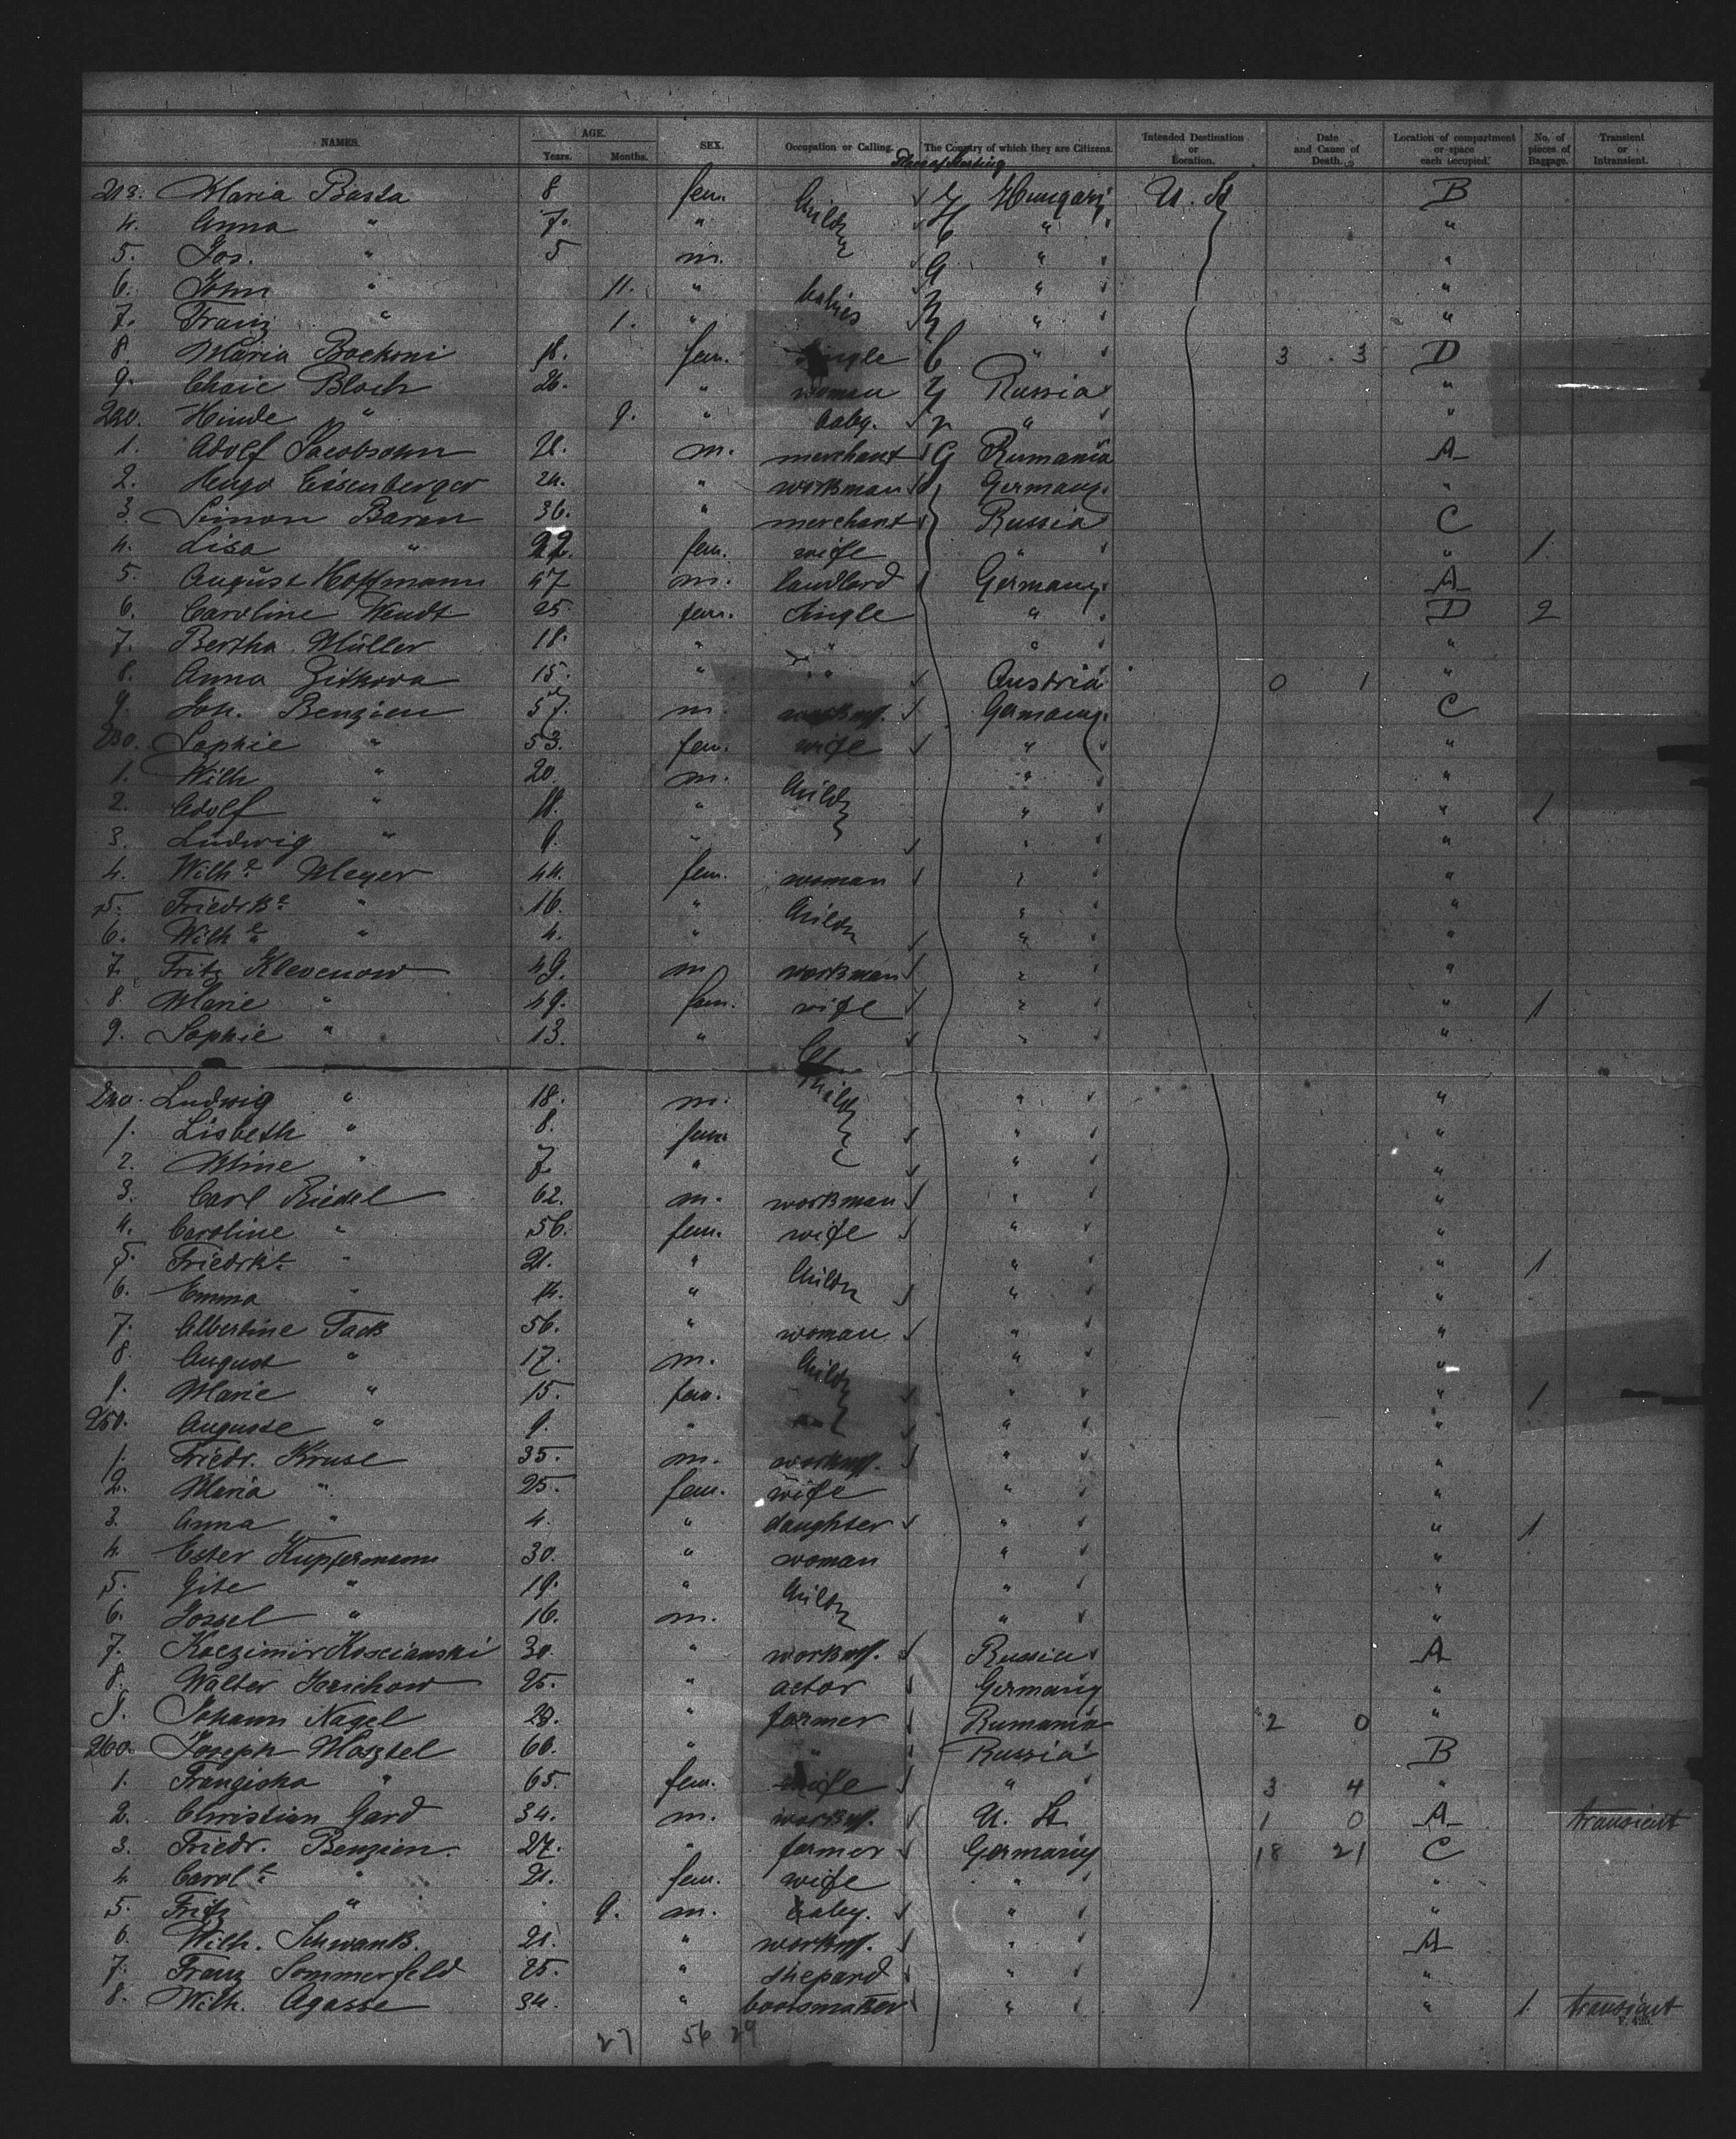 NAMES. AGE. Years. Months. SEX. Occupation or Calling. The Country of which they are Citizens. Intended Destination or Location. Date and Cause of Death. Location of compartment or space each occupied. No. of pieces of Baggage. Transient or Intransient.
213. Maria Basta 8 fem. Hungary U. St B
4. Anna " 7. " " "
5. Jos. " 5 m. " "
6. John " 11. " babies " "
7. Franz " 1. " " "
8. Maria 18. fem. single " 3 3 D
9. Chaie Bloch 26. " woman Russia "
220. Hinde " 9. " baby. " "
1. Adolf Jacobsohn 21. m. merchant G Rumania A
2. Hugo Eisenberger 24. " workman Germany "
3. Simon Baran 36. " merchant Russia C
4. Lisa " 22. fem. wife " " 1.
5. August Hoffmann 47 m. landlord Germany A
6. Caroline Wendt 25. fem. single " D 2
7. Bertha Müller 18. " " " "
8. Anna Zitkova 15. " " Austria 0 1 "
9. Joh. Benzien 57. m. Germany C
230. Sophie " 53. fem. wife " "
1. Wilh " 20. m. Childr " "
2. Adolf " 11. " " " 1
3. Ludwig " 9. " " "
4. Wilhe Meyer 44. fem. woman " "
5. Friedrke " 16. " Childr " "
6. Wilhe " 4. " " "
7. Fritz Klevenow 49. m workman " "
8. Marie " 49. fem. wife " " 1
9. Sophie " 13. " " "
240. Ludwig " 18. m. Childr " "
1. Lisbeth " 8. fem " "
2. Mine " 7. " " "
3. Carl Riedel 62. m. workman " "
4. Caroline " 56. fem. wife " "
5. Friedrke " 21. " Childr " " 1
6. Emma " 14. " " "
7. Albertine Tack 56. " woman " "
8. August " 17. m. Childr " "
9. Marie " 15. fem. " " 1.
250. Auguste " 9. " " "
1. Friedr. Kruse 35. m. " "
2. Maria " 25. fem. wife " "
3. Anna " 4. " daughter " " 1
4. Ester Kupfermann 30. " woman " "
5. Gite " 19. " Childr " "
6. Jossel " 16. m. " "
7. Kaczimir Koscianski 30. " Russia A
8. Walter Jerichow 25. " actor Germany "
9. Johann Nagel 28. " farmer Rumania 2 0 "
260. Joseph 60. " " Russia B
1. Franziska " 65. fem. wife " 3 4 "
2. Christian Gard 34. m. U. St 1 0 A transient
3. Friedr. Benzien. 27. " farmer Germany 18 21 C
4. Carole " 21. fem. wife " "
5. Fritz " 9. m. baby. " "
6. Wilh. Schwank. 21. " " A
7. Franz Sommerfeld 25. " shepard " "
8. Wilh. Agasse 34. " bootsmaker " " 1. transient
F. 425.
27 56 29